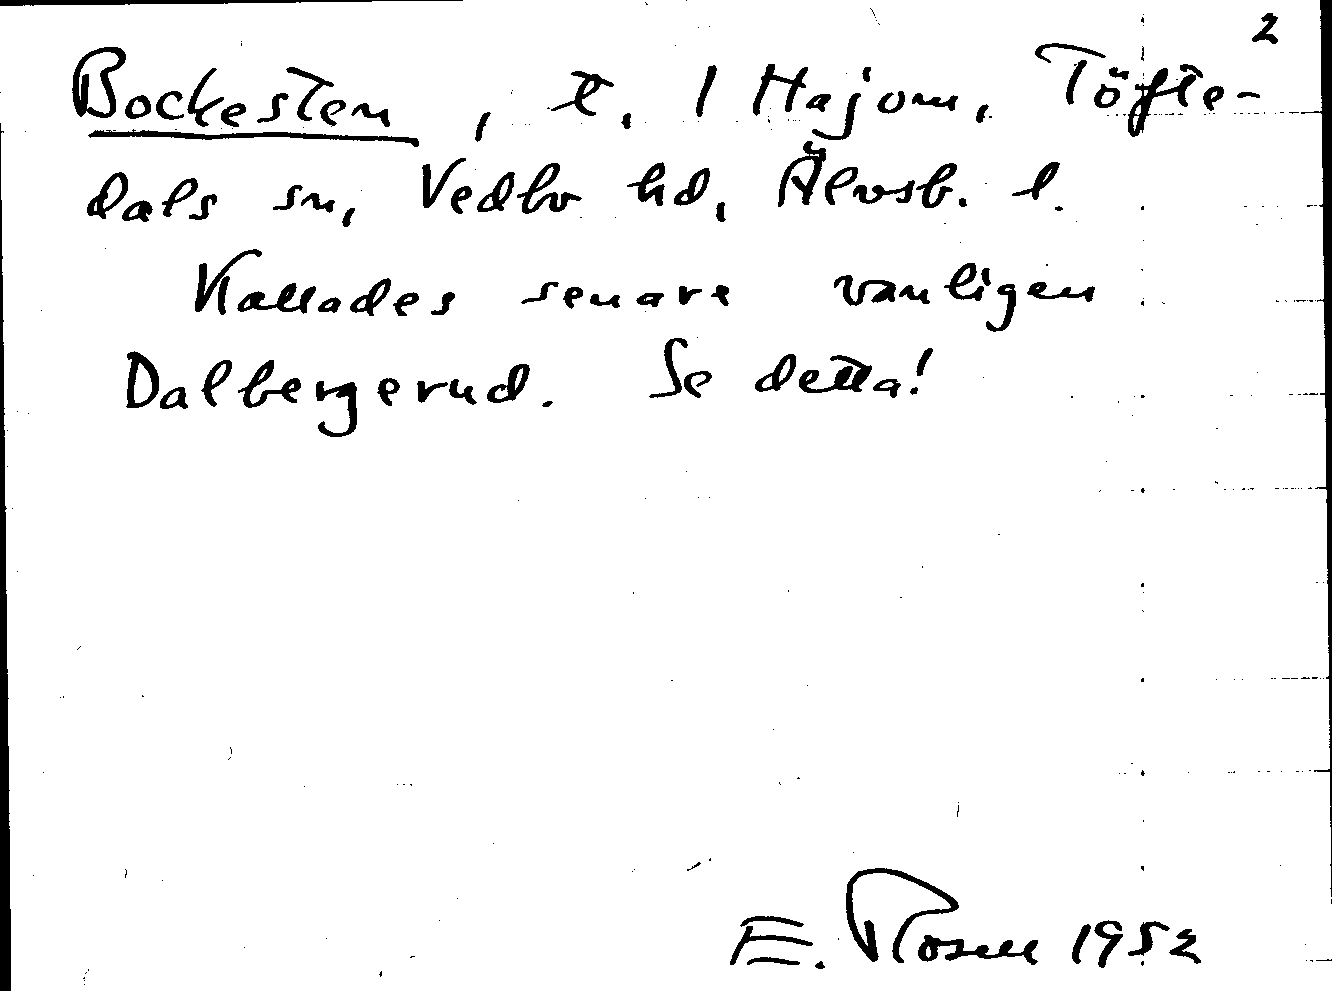 2
Bockesten, t. 1 Hajom, Töfte-
dals sn, Vedbo hd, Älvsb. l.
Kallades senare vanligen
Dalbergerud. Se detta!
E. Rosell 1952